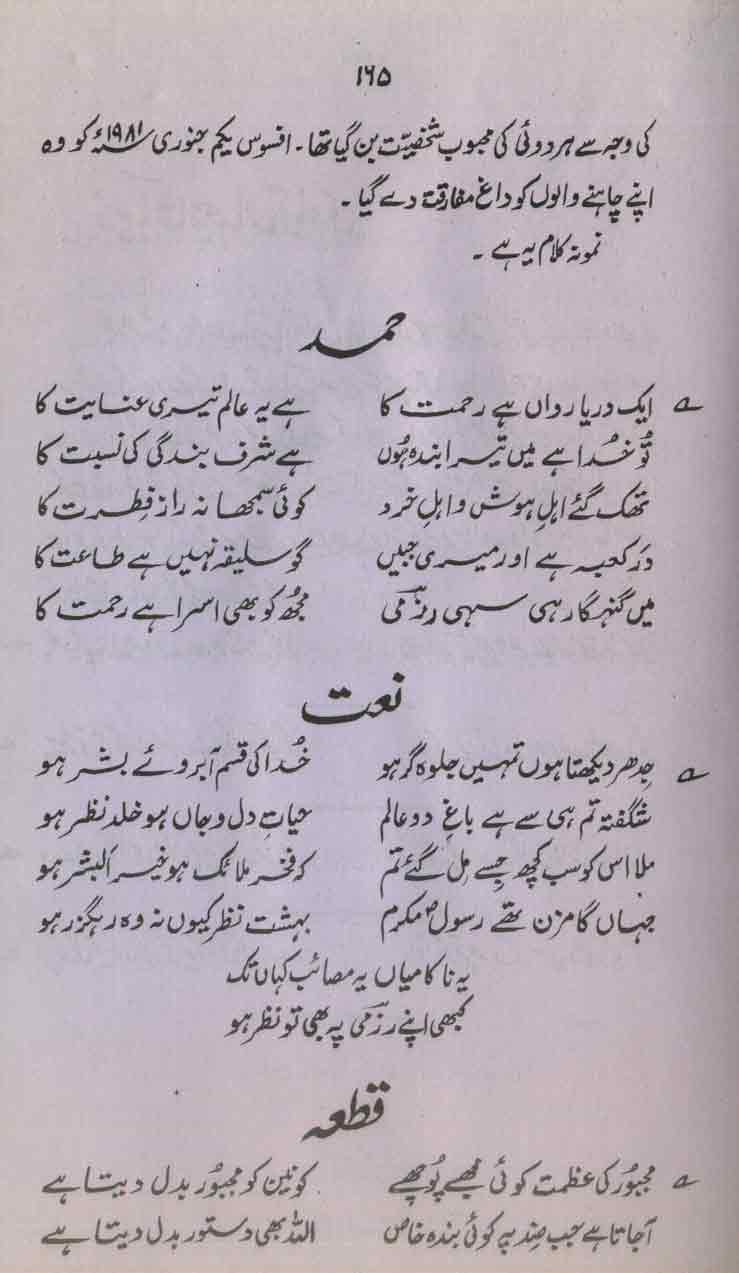 ۱۶۵
کی وجہ سے ہردوئی کی محبوب شخصیت بن گیا تھا۔ افسوس یکم جنوری ۱۹۸۱ء کو وہ
اپنے چاہنے والوں کو داغ مفارقت دے گیا۔
نمونہ کلام یہ ہے۔
حمد
ایک دریا رواں ہے رحمت کا ہے یہ عالم تیری عنایت کا
تُو خُدا ہے میں تیرا بندہ ہُوں ہے شرف بندگی کی نسبت کا
تھک گئے اہلِ ہوش و اہلِ خرد کوئی سمجھا نہ رازِ فِطرت کا
در کعبہ ہے اور میری جبیں گو سلیقہ نہیں ہے طاعت کا
میں گنہگار ہی سہی رزمی مجُھ کو بھی اسرا ہے رحمت کا
نعت
جِدھر دیکھتا ہوں تمہیں جلوہ گر ہو خُدا کی قسم آبروئے بشر ہو
شگفتہ تم ہی سے ہے باغِ دو عالم حیاتِ دل و جاں ہو خلد نظر ہو
ملا اس کو سب کچھ جِسے مِل گئے تم کہ فخر ملائک ہو خیر البشر ہو
جہاں گامزن تھے رسولؐ مکرم بہشت نظر کیوں نہ وہ رہگزر ہو
یہ ناکامیاں یہ مصائب کہاں تک
کبھی اپنے رزمی پہ بھی تو نظر ہو
قطعہ
مجبُور کی عظمت کوئی مجھ سے پُوچھے کونین کو مجبُور بدل دیتا ہے
آجاتا ہے جب ضِد پہ کوئی بندہ خاص اللہ بھی دستور بدل دیتا ہے